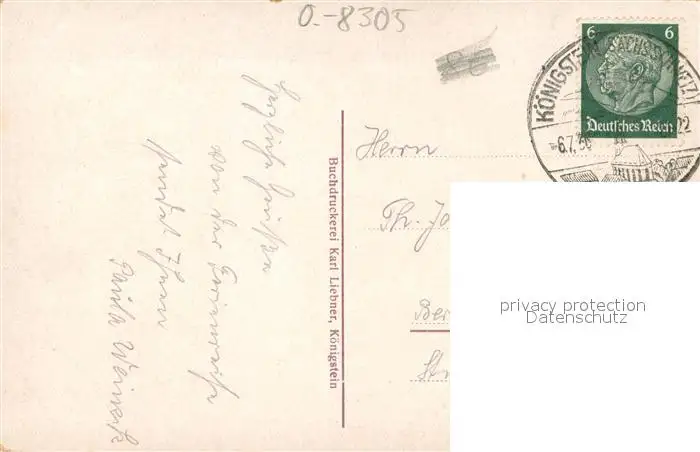 O.-8305
Herzliche Grüße
von der Ferienreise
sendet Ihnen
Paula
Buchdruckerei Karl Liebner, Königstein
6 6
Deutsches Reich
KÖNIGSTEIN (SÄCHS. SCHWEIZ)
-6.7.36
22
Herrn
Th. Jo
Ber
St
privacy protection
Datenschutz